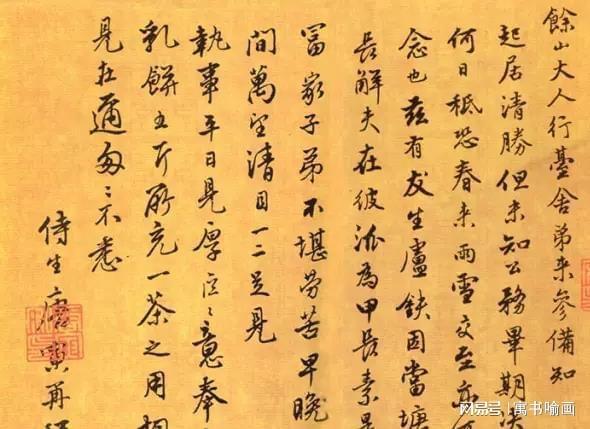 餘山大人行臺舍弟来參備知
起居清勝但未知公務畢期
何日秪恐春来雨雪交至亦
念也茲有友生盧鈇因當塘
長解夫在彼泒為甲長素
富家子弟不堪勞苦早晚
間萬望清目一二足見
執事平日見厚區〻意奉
乳餅五斤所充一茶之用
見在邇匆〻不悉
侍生唐寅再
网易号 | 寓书喻画